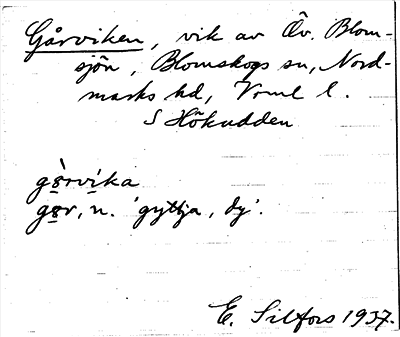 Gårviken, vik av Öv. Blom-
sjön, Blomskogs sn, Nord-
marks hd, Vrml l.
S Hökudden
gòrvíka
gor, n. 'gyttja, dy'.
E. Silfors 1937.